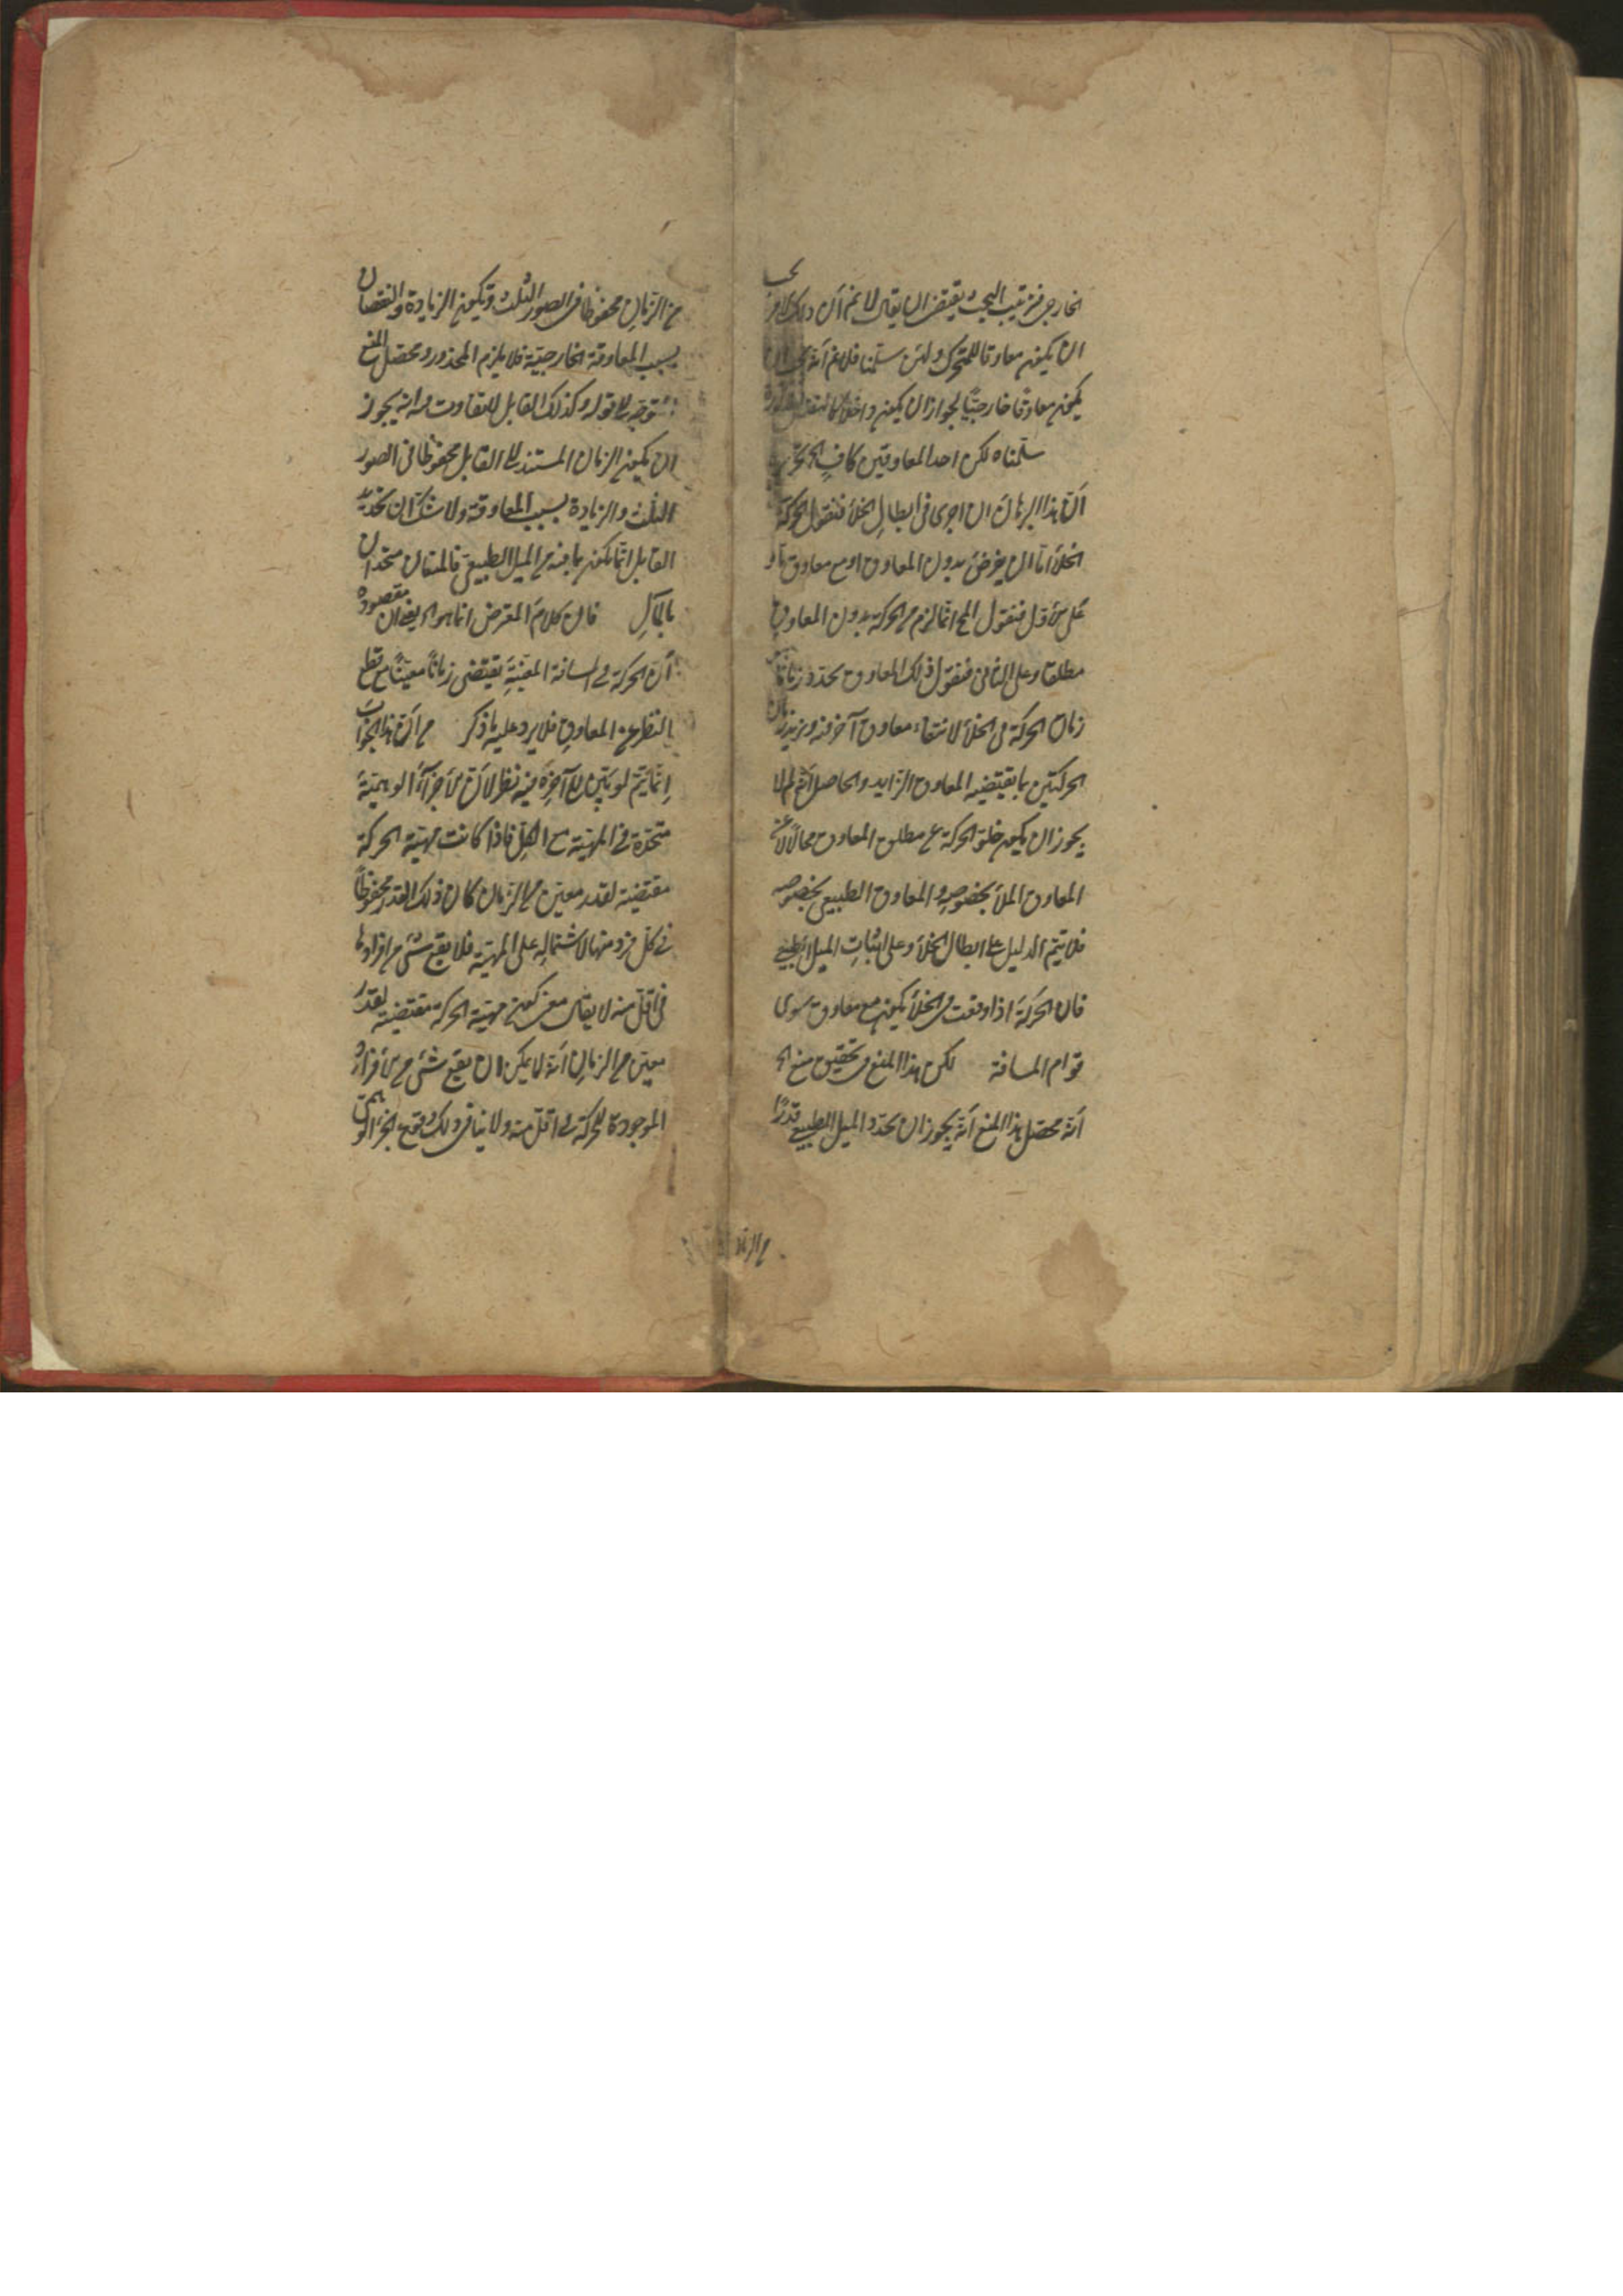 الخارجى فترتيب البحث يقتضى ان يقال لا نم أن ذلك الامر يجب
ان يكون معاوقا للمتحرك ولئن سلمنا فلا نم أنه يجب ان
يكون معاوقا خارجيّا لجواز ان يكون داخلا
سلّمناه لكن احد المعاوقين كاف
أنّ هذا البرهان ان اجرى فى ابطالِ الخلأ فنقول الحركة
الخلأ امّا ان يفرض بدون المعاوق او مع معاوق
على الأول فنقول المح انّما لزم من الحركة بدون المعاوق
مطلقا وعلى الثانى فنقول ذلك المعاوق يحدّد زمانا
زمان الحركة فى الخلأ لانتفاء معاوق آخر فيه ويزيد زمان
الحركتين بما يقتضيه المعاوق الزايد والحاصل أنّه لم لا
يجوز ان يكون خلوّ الحركة عن مطلق المعاوق محالا لا عن
المعاوق الملأ بخصوصه والمعاوق الطبيعى بخصوصه
فلا يتم الدليل على ابطال الخلأ وعلى اثباتِ الميل الطبيعى
فان الحركة اذا وقعت فى الخلأ يكون مع معاوق سوى
قوام المسافة لكن هذا المنع فى تحقيق منع
أنّه محصّل هذا المنع أنّه يجوز ان يحدّد الميل الطبيعى قدرًا
من الزمان
من الزمانِ محفوظا فى الصور الثلث ويكون الزيادة والنقصان
بسبب المعاوقة الخارجيّة فلا يلزم المحذور ومحصّل المنع
متوجّه الى قوله وكذلك القابل لا يتفاوت فيه انه يجوز
ان يكون الزمان المستند الى القابل محفوظا فى الصور
الثلث والزيادة بسبب المعاوقة ولا شك ان تحديد
القابل انّما يكون بما فيه من الميل الطبيعى فالمنعان متحدان
بالمآل فان كلامَ المعترض انما هو مقصوده
أنّ الحركة فى المسافة المعيّنةِ يقتضى زمانًا معيّنًا مع قطع
النظر عن المعاوق فلا يرد عليه ما ذكر من أنّ هذا الجوابَ
اِنّما يتمّ لو فيه نظر لأنّ الأجزآءَ الوهميّةَ
متحدة فى المهيّة مع الكلّ فاذا كانت مهيّة الحركة
مقتضية لقدرٍ معيّن من الزمان كان ذلك القدر محفوظًا
فى كلّ فرد منها لاشتماله على المهيّة فلا يقع شئ من افرادها
فى اقلّ منه لا يقال معنى كون مهيّة الحركة مقتضية لقدر
معيّن من الزمانِ أنّه لا يمكن ان يقع شئ من أفراده
الموجودة للحركة فى اقلّ منه ولا ينافى ذلك وقوع الجزء الوهمى